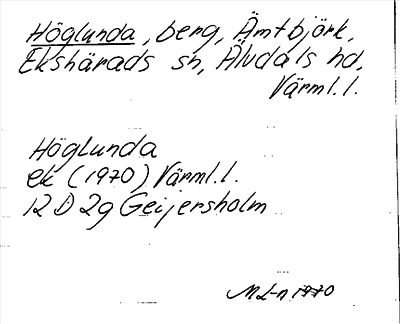 Höglunda, berg, Ämtbjörk,
Ekshärads sn, Äludals hd,
Värml.l.
Höglunda
ek (1970) Värml.l.
12 D 2g Geijersholm
M L-n 1970